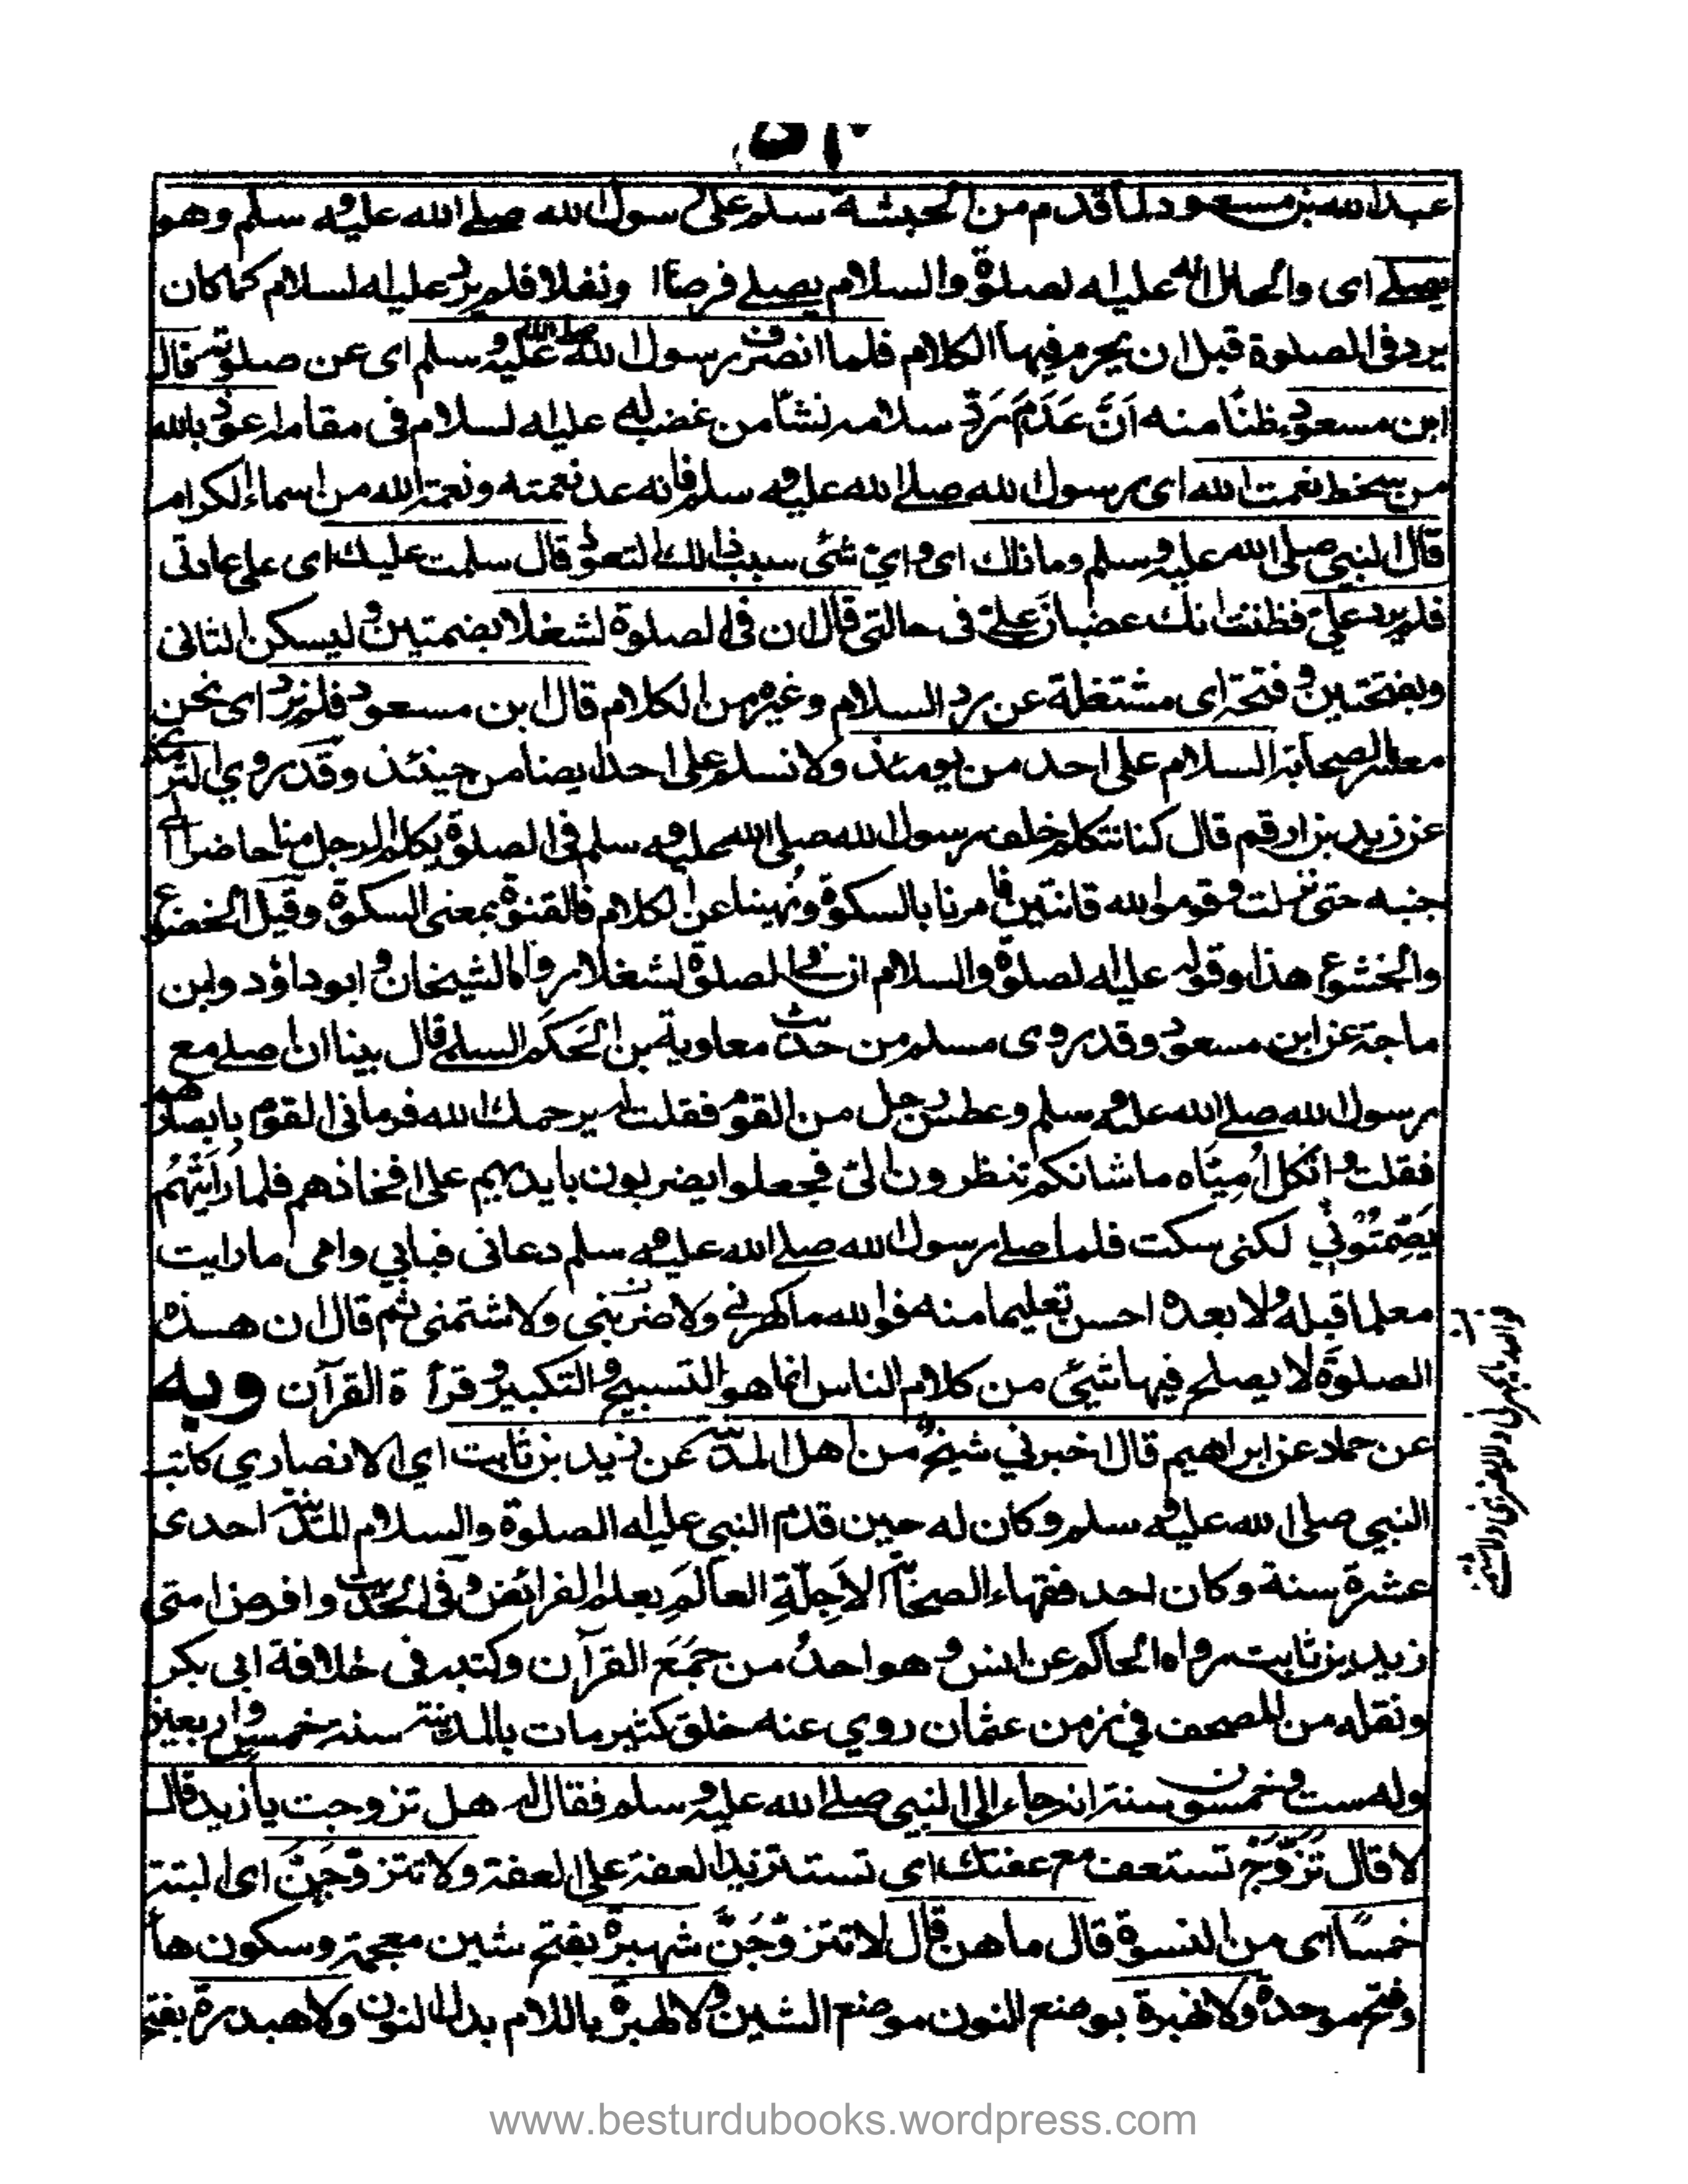 عبد الله بن مسعود لما قدم من الحبشة سلم على رسول الله صلى الله عليه وسلم وهو
يصلي اى والحال انه عليه الصلوة والسلام يصلى فرضا او نفلا فلم يرد عليه السلام كما كان
يرد فى الصلوة قبل ان يحرم فيها الكلام فلما انصرف رسول الله صلى الله عليه وسلم اى عن صلوته قال
ابن مسعود ظنا منه اَنَّ عَدَمَ رَدِّ سلامه نشأ من غضب له عليه السلام فى مقامه اعوذ بالله
من سخط نعمت الله اى رسول الله صلى الله عليه وسلم فانه عد نعمته ونعمة الله من اسمائه الكرام
قال النبي صلى الله عليه وسلم وما ذاك اى واي شئ سبب ذلك التعوذ قال سلمت عليك اى على عادتى
فلم يرد علي فظننت انك غضبان علي فى حالتى قال ان فى الصلوة لشغلا بضمتين وليسكن الثانى
وبفتحتين وفتحة اى مشتغلة عن رد السلام وغيره من الكلام قال ابن مسعود فلم نرد اى نحن
معشر الصحابة السلام على احد من يومئذ ولا نسلم على احد ايضا من حينئذ وقد روي الترمذي
عن زيد بن ارقم قال كنا نتكلم خلف رسول الله صلى الله عليه وسلم فى الصلوة يكلم الرجل منا حاضرا الى
جنبه حتى نزلت وقوموا لله قانتين فامرنا بالسكوة ونُهينا عن الكلام فالقنوة بمعنى السكوة وقيل الخضوع
والخشوع هذا وقوله عليه الصلوة والسلام ان في الصلوة لشغلا رواه الشيخان وابو داؤد وابن
ماجة عن ابن مسعود وقد روى مسلم من حديث معاوية بن الحَكَم السلمي قال بينا انا اصلي مع
رسول الله صلى الله عليه وسلم وعطس رجل من القوم فقلت له يرحمك الله فرمانى القوم بابصارهم
فقلت واثكل اُمِيّاه ما شانكم تنظرون الىّ فجعلوا يضربون بايديهم على افخاذهم فلما رَاَيتُهُم
يُصَمِّتُوني لكنى سكت فلما صلى رسول الله صلى الله عليه وسلم دعانى فبابي وامى ما رايت
معلما قبله ولا بعده احسن تعليما منه فوالله ما كهرني ولا ضربني ولا شتمنى ثم قال ان هذه
الصلوة لا يصلح فيها شئي من كلام الناس انما هو التسبيح والتكبير وقرأة القرآن وبه
عن حماد عن ابراهيم قال اخبرني شيخ من اهل المدينة عن زيد بن ثابت اي الانصاري كاتب
النبي صلى الله عليه وسلم وكان له حين قدم النبي عليه الصلوة والسلام المدينة احدى
عشرة سنة وكان احد فقهاء الصحابة الاَجِلّةِ العالم بعلم الفرائض وفى الحديث وافرض امتى
زيد بن ثابت رواه الحاكم عن انس وهو احدُ من جَمَعَ القرآن وكتبه فى خلافة ابى بكر
ونقله من المصحف في زمن عثمان روي عنه خلق كثير مات بالمدينة سنة خمس واربعين
وله ست وخمسون سنة انه جاء الى النبي صلى الله عليه وسلم فقال له هل تزوجت يا زيد قال
لا قال تَزَوَّجْ تستعف مع عفتك اى تستزيد العفة على العفة ولا تتزوَّجَنَّ اى البتة
خمسًا اى من النسوة قال ما هن قال لا تتزوَّجَنَّ شهبرة بفتح شين معجمة وسكون هاء
وفتح موحدة ولا نهبرة بوضع النون موضع الشين ولا لهبرة باللام بدل النون ولا هبدرة بفتح
www.besturdubooks.wordpress.com